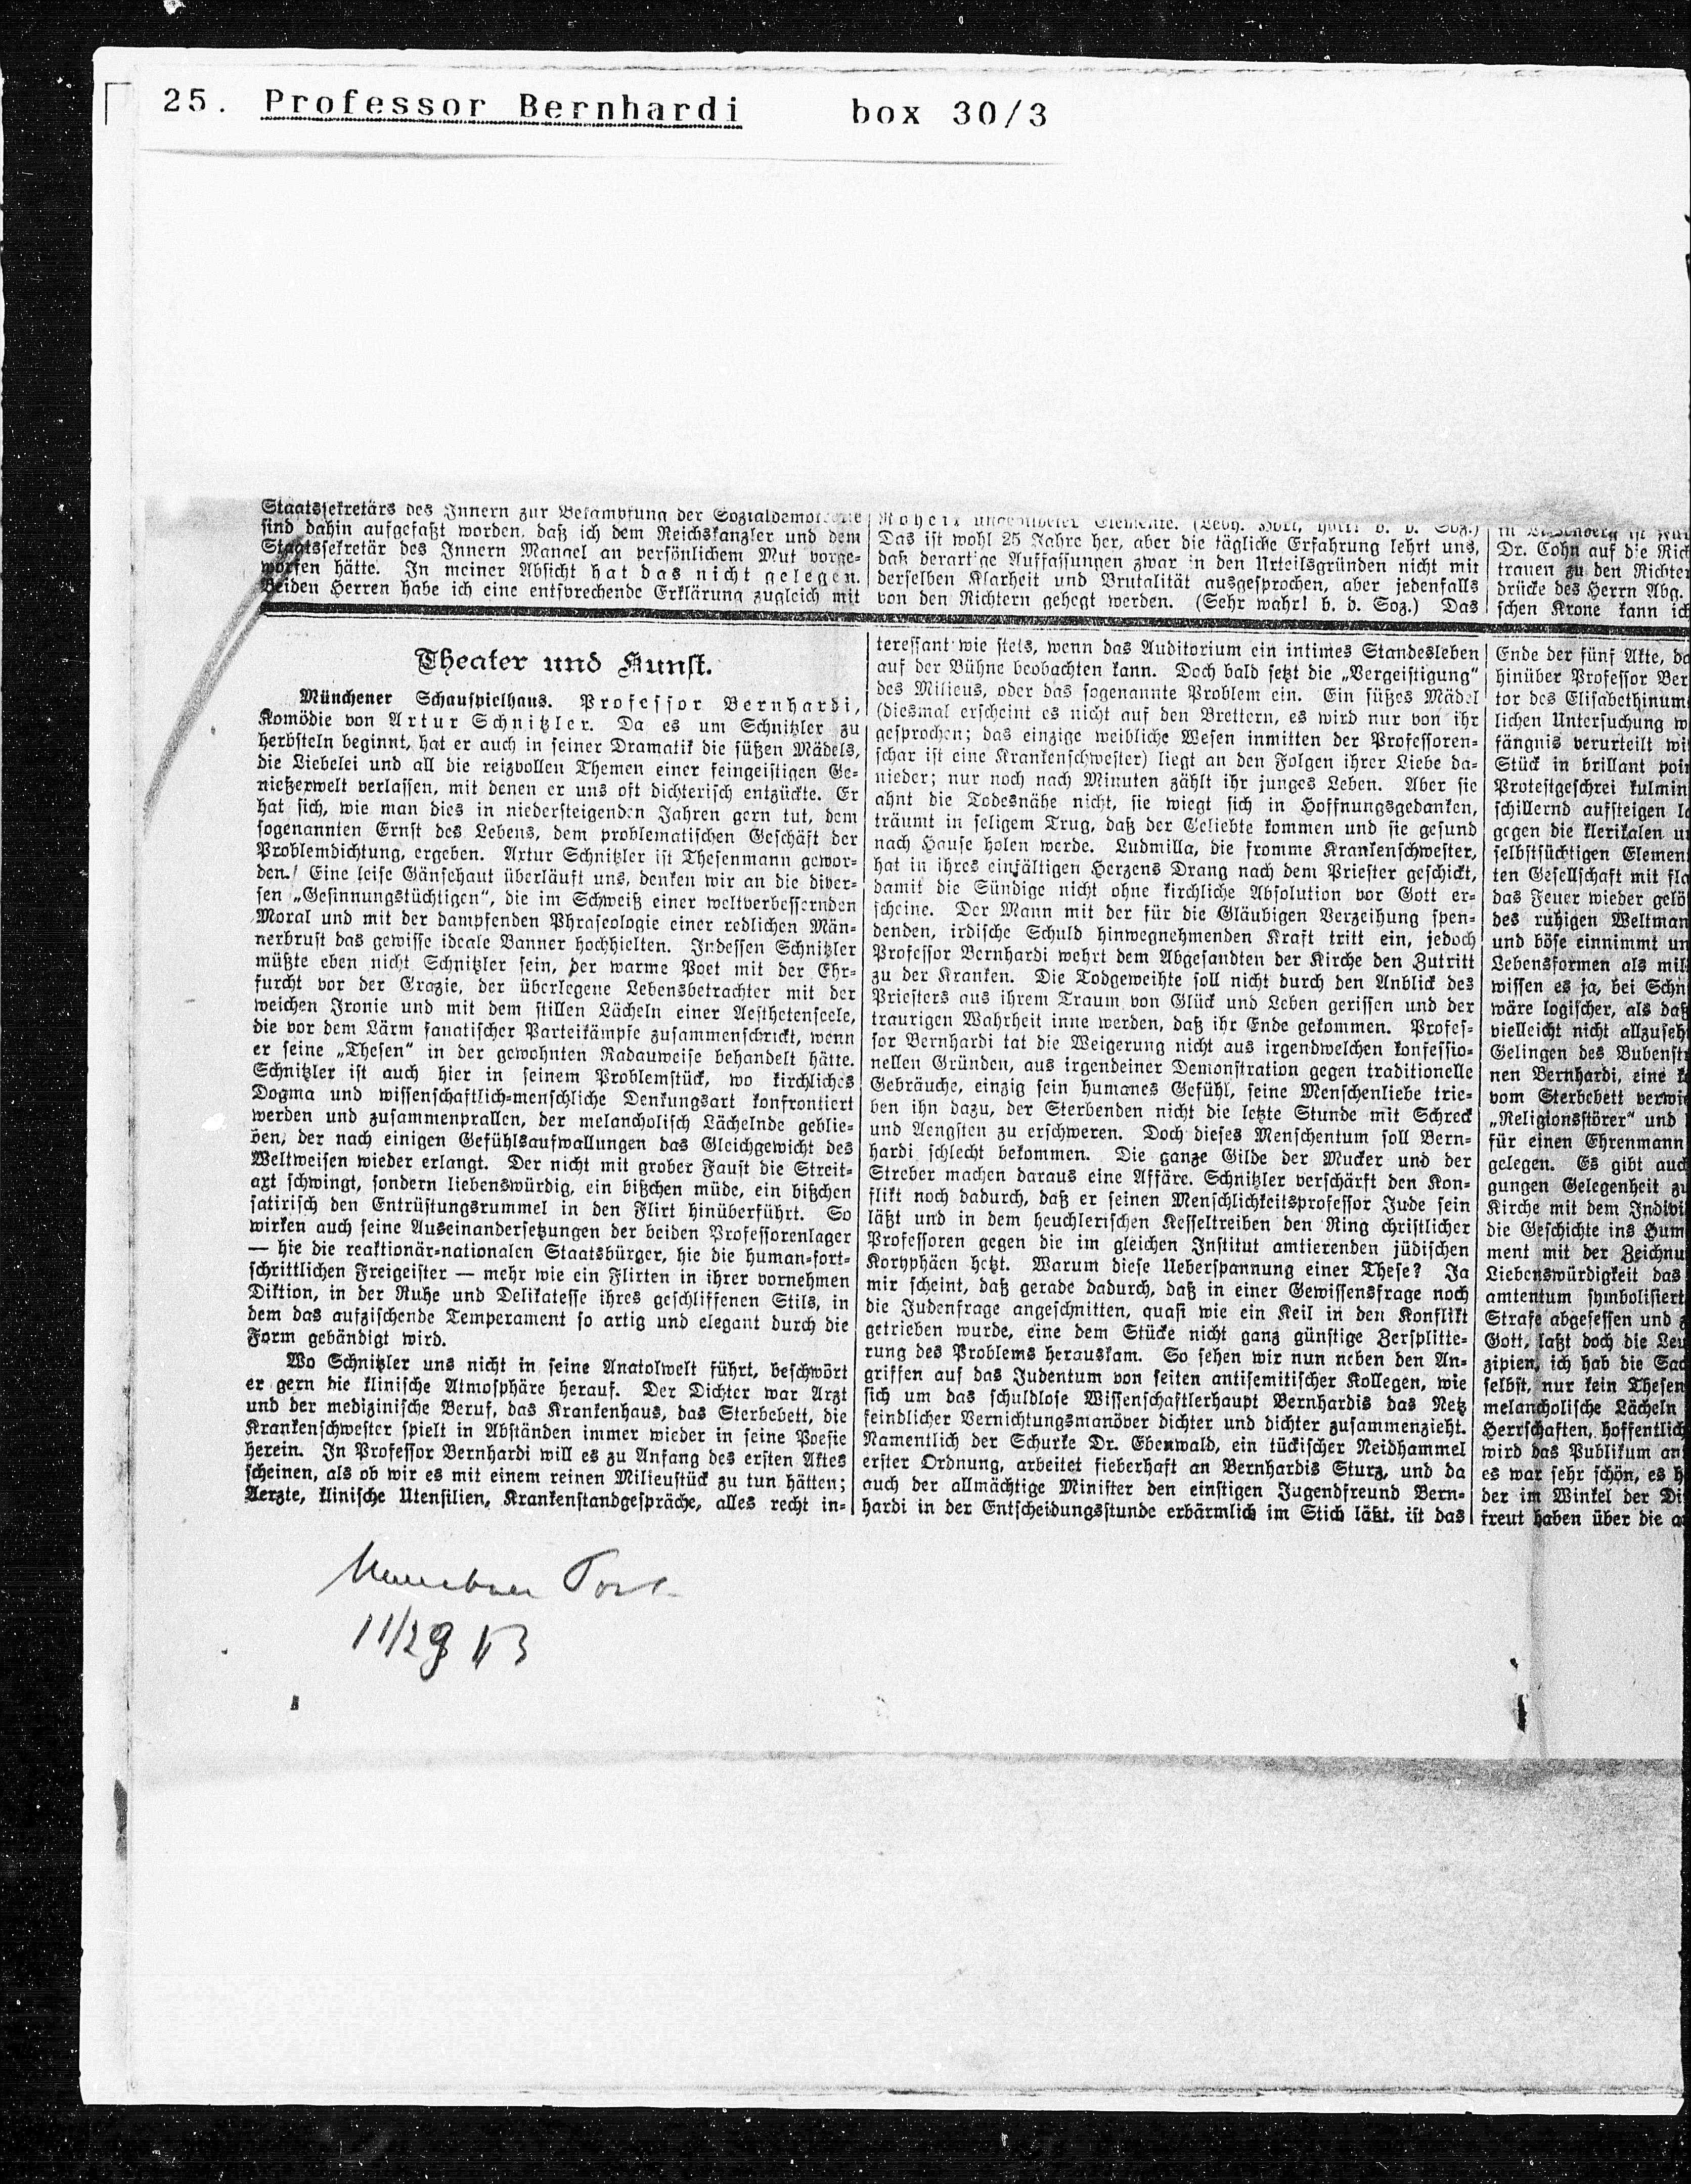 25. Professor Bernhardi box 30/3
Staatssekretärs des Innern zur Bekämpfung der
sind dahin aufgefaßt worden, daß ich dem Reichskanzler und dem
Staatssekretär des Innern Mangel an persönlichem Mut vorge-
worfen hätte. In meiner Absicht hat das nicht gelegen.
Beiden Herren habe ich eine entsprechende Erklärung zugleich mit
Das ist wohl 25 Jahre her, aber die tägliche Erfahrung lehrt uns,
daß derartige Auffassungen zwar in den Urteilsgründen nicht mit
derselben Klarheit und Brutalität ausgesprochen, aber jedenfalls
von den Richtern gehegt werden. (Sehr wahr! b. d. Soz.) Das
Dr. Cohn auf die Rich
trauen zu den Richter
drücke des Herrn Abg.
schen Krone kann ich
Theater und Kunst.
Münchener Schauspielhaus. Professor Bernhardi,
Komödie von Artur Schnitzler. Da es um Schnitzler zu
herbsteln beginnt, hat er auch in seiner Dramatik die süßen Mädels,
die Liebelei und all die reizvollen Themen einer feingeistigen Ge-
nießerwelt verlassen, mit denen er uns oft dichterisch entzückte. Er
hat sich, wie man dies in niedersteigenden Jahren gern tut, dem
sogenannten Ernst des Lebens, dem problematischen Geschäft der
Problemdichtung, ergeben. Artur Schnitzler ist Thesenmann gewor-
den. Eine leise Gänsehaut überläuft uns, denken wir an die diver-
sen „Gesinnungstüchtigen“, die im Schweiß einer weltverbessernden
Moral und mit der dampfenden Phraseologie einer redlichen Män-
nerbrust das gewisse ideale Banner hochhielten. Indessen Schnitzler
müßte eben nicht Schnitzler sein, der warme Poet mit der Ehr-
furcht vor der Grazie, der überlegene Lebensbetrachter mit der
weichen Ironie und mit dem stillen Lächeln einer Aesthetenseele,
die vor dem Lärm fanatischer Parteikämpfe zusammenschrickt, wenn
er seine „Thesen“ in der gewohnten Radauweise behandelt hätte.
Schnitzler ist auch hier in seinem Problemstück, wo kirchliches
Dogma und wissenschaftlich-menschliche Denkungsart konfrontiert
werden und zusammenprallen, der melancholisch Lächelnde geblie-
ben, der nach einigen Gefühlsaufwallungen das Gleichgewicht des
Weltweisen wieder erlangt. Der nicht mit grober Faust die Streit-
axt schwingt, sondern liebenswürdig, ein bißchen müde, ein bißchen
satirisch den Entrüstungsrummel in den Flirt hinüberführt. So
wirken auch seine Auseinandersetzungen der beiden Professorenlager
— hie die reaktionär-nationalen Staatsbürger, hie die human-fort-
schrittlichen Freigeister — mehr wie ein Flirten in ihrer vornehmen
Diktion, in der Ruhe und Delikatesse ihres geschliffenen Stils, in
dem das aufzischende Temperament so artig und elegant durch die
Form gebändigt wird.
Wo Schnitzler uns nicht in seine Anatolwelt führt, beschwört
er gern die klinische Atmosphäre herauf. Der Dichter war Arzt
und der medizinische Beruf, das Krankenhaus, das Sterbebett, die
Krankenschwester spielt in Abständen immer wieder in seine Poesie
herein. In Professor Bernhardi will es zu Anfang des ersten Aktes
scheinen, als ob wir es mit einem reinen Milieustück zu tun hätten;
Aerzte, klinische Utensilien, Krankenstandgespräche, alles recht in-
teressant wie stets, wenn das Auditorium ein intimes Standesleben
auf der Bühne beobachten kann. Doch bald setzt die „Vergeistigung“
des Milieus, oder das sogenannte Problem ein. Ein süßes Mädel
(diesmal erscheint es nicht auf den Brettern, es wird nur von ihr
gesprochen; das einzige weibliche Wesen inmitten der Professoren-
schar ist eine Krankenschwester) liegt an den Folgen ihrer Liebe da-
nieder; nur noch nach Minuten zählt ihr junges Leben. Aber sie
ahnt die Todesnähe nicht, sie wiegt sich in Hoffnungsgedanken,
träumt in seligem Trug, daß der Geliebte kommen und sie gesund
nach Hause holen werde. Ludmilla, die fromme Krankenschwester,
hat in ihres einfältigen Herzens Drang nach dem Priester geschickt,
damit die Sündige nicht ohne kirchliche Absolution vor Gott er-
scheine. Der Mann mit der für die Gläubigen Verzeihung spen-
denden, irdische Schuld hinwegnehmenden Kraft tritt ein, jedoch
Professor Bernhardi wehrt dem Abgesandten der Kirche den Zutritt
zu der Kranken. Die Todgeweihte soll nicht durch den Anblick des
Priesters aus ihrem Traum von Glück und Leben gerissen und der
traurigen Wahrheit inne werden, daß ihr Ende gekommen. Profes-
sor Bernhardi tat die Weigerung nicht aus irgendwelchen konfessio-
nellen Gründen, aus irgendeiner Demonstration gegen traditionelle
Gebräuche, einzig sein humanes Gefühl, seine Menschenliebe trie-
ben ihn dazu, der Sterbenden nicht die letzte Stunde mit Schreck
und Aengsten zu erschweren. Doch dieses Menschentum soll Bern-
hardi schlecht bekommen. Die ganze Gilde der Mucker und der
Streber machen daraus eine Affäre. Schnitzler verschärft den Kon-
flikt noch dadurch, daß er seinen Menschlichkeitsprofessor Jude sein
läßt und in dem heuchlerischen Kesseltreiben den Ring christlicher
Professoren gegen die im gleichen Institut amtierenden jüdischen
Koryphäen hetzt. Warum diese Ueberspannung einer These? Ja
mir scheint, daß gerade dadurch, daß in einer Gewissensfrage noch
die Judenfrage angeschnitten, quasi wie ein Keil in den Konflikt
getrieben wurde, eine dem Stücke nicht ganz günstige Zersplitte-
rung des Problems herauskam. So sehen wir nun neben den An-
griffen auf das Judentum von seiten antisemitischer Kollegen, wie
sich um das schuldlose Wissenschaftlerhaupt Bernhardis das Netz
feindlicher Vernichtungsmanöver dichter und dichter zusammenzieht.
Namentlich der Schurke Dr. Ebenwald, ein tückischer Neidhammel
erster Ordnung, arbeitet fieberhaft an Bernhardis Sturz, und da
auch der allmächtige Minister den einstigen Jugendfreund Bern-
hardi in der Entscheidungsstunde erbärmlich im Stich läßt, ist das
Ende der fünf Akte, da
hinüber Professor Ber
tor des Elisabethinum
lichen Untersuchung w
fängnis verurteilt wi
Stück in brillant poin
Protestgeschrei kulmin
schillernd aufsteigen l
gegen die klerikalen u
selbstsüchtigen Elemen
ten Gesellschaft mit fla
das Feuer wieder gelö
des ruhigen Weltman
und böse einnimmt un
Lebensformen als mil
wissen es ja, bei Schni
wäre logischer, als daß
vielleicht nicht allzuseh
Gelingen des Bubenst
nen Bernhardi, eine k
vom Sterbebett verwi
„Religionsstörer“ und
für einen Ehrenmann
gelegen. Es gibt auch
gungen Gelegenheit zu
Kirche mit dem Indivi
die Geschichte ins Hum
ment mit der Zeichnu
Liebenswürdigkeit das
amtentum symbolisiert
Strafe abgesessen und
Gott, laßt doch die Leu
zipien, ich hab die Sac
selbst, nur kein Thesen
melancholische Lächeln
Herrschaften, hoffentlich
wird das Publikum an
es war sehr schön, es h
der im Winkel der Di
freut haben über die
Münchner Post
11/29 13